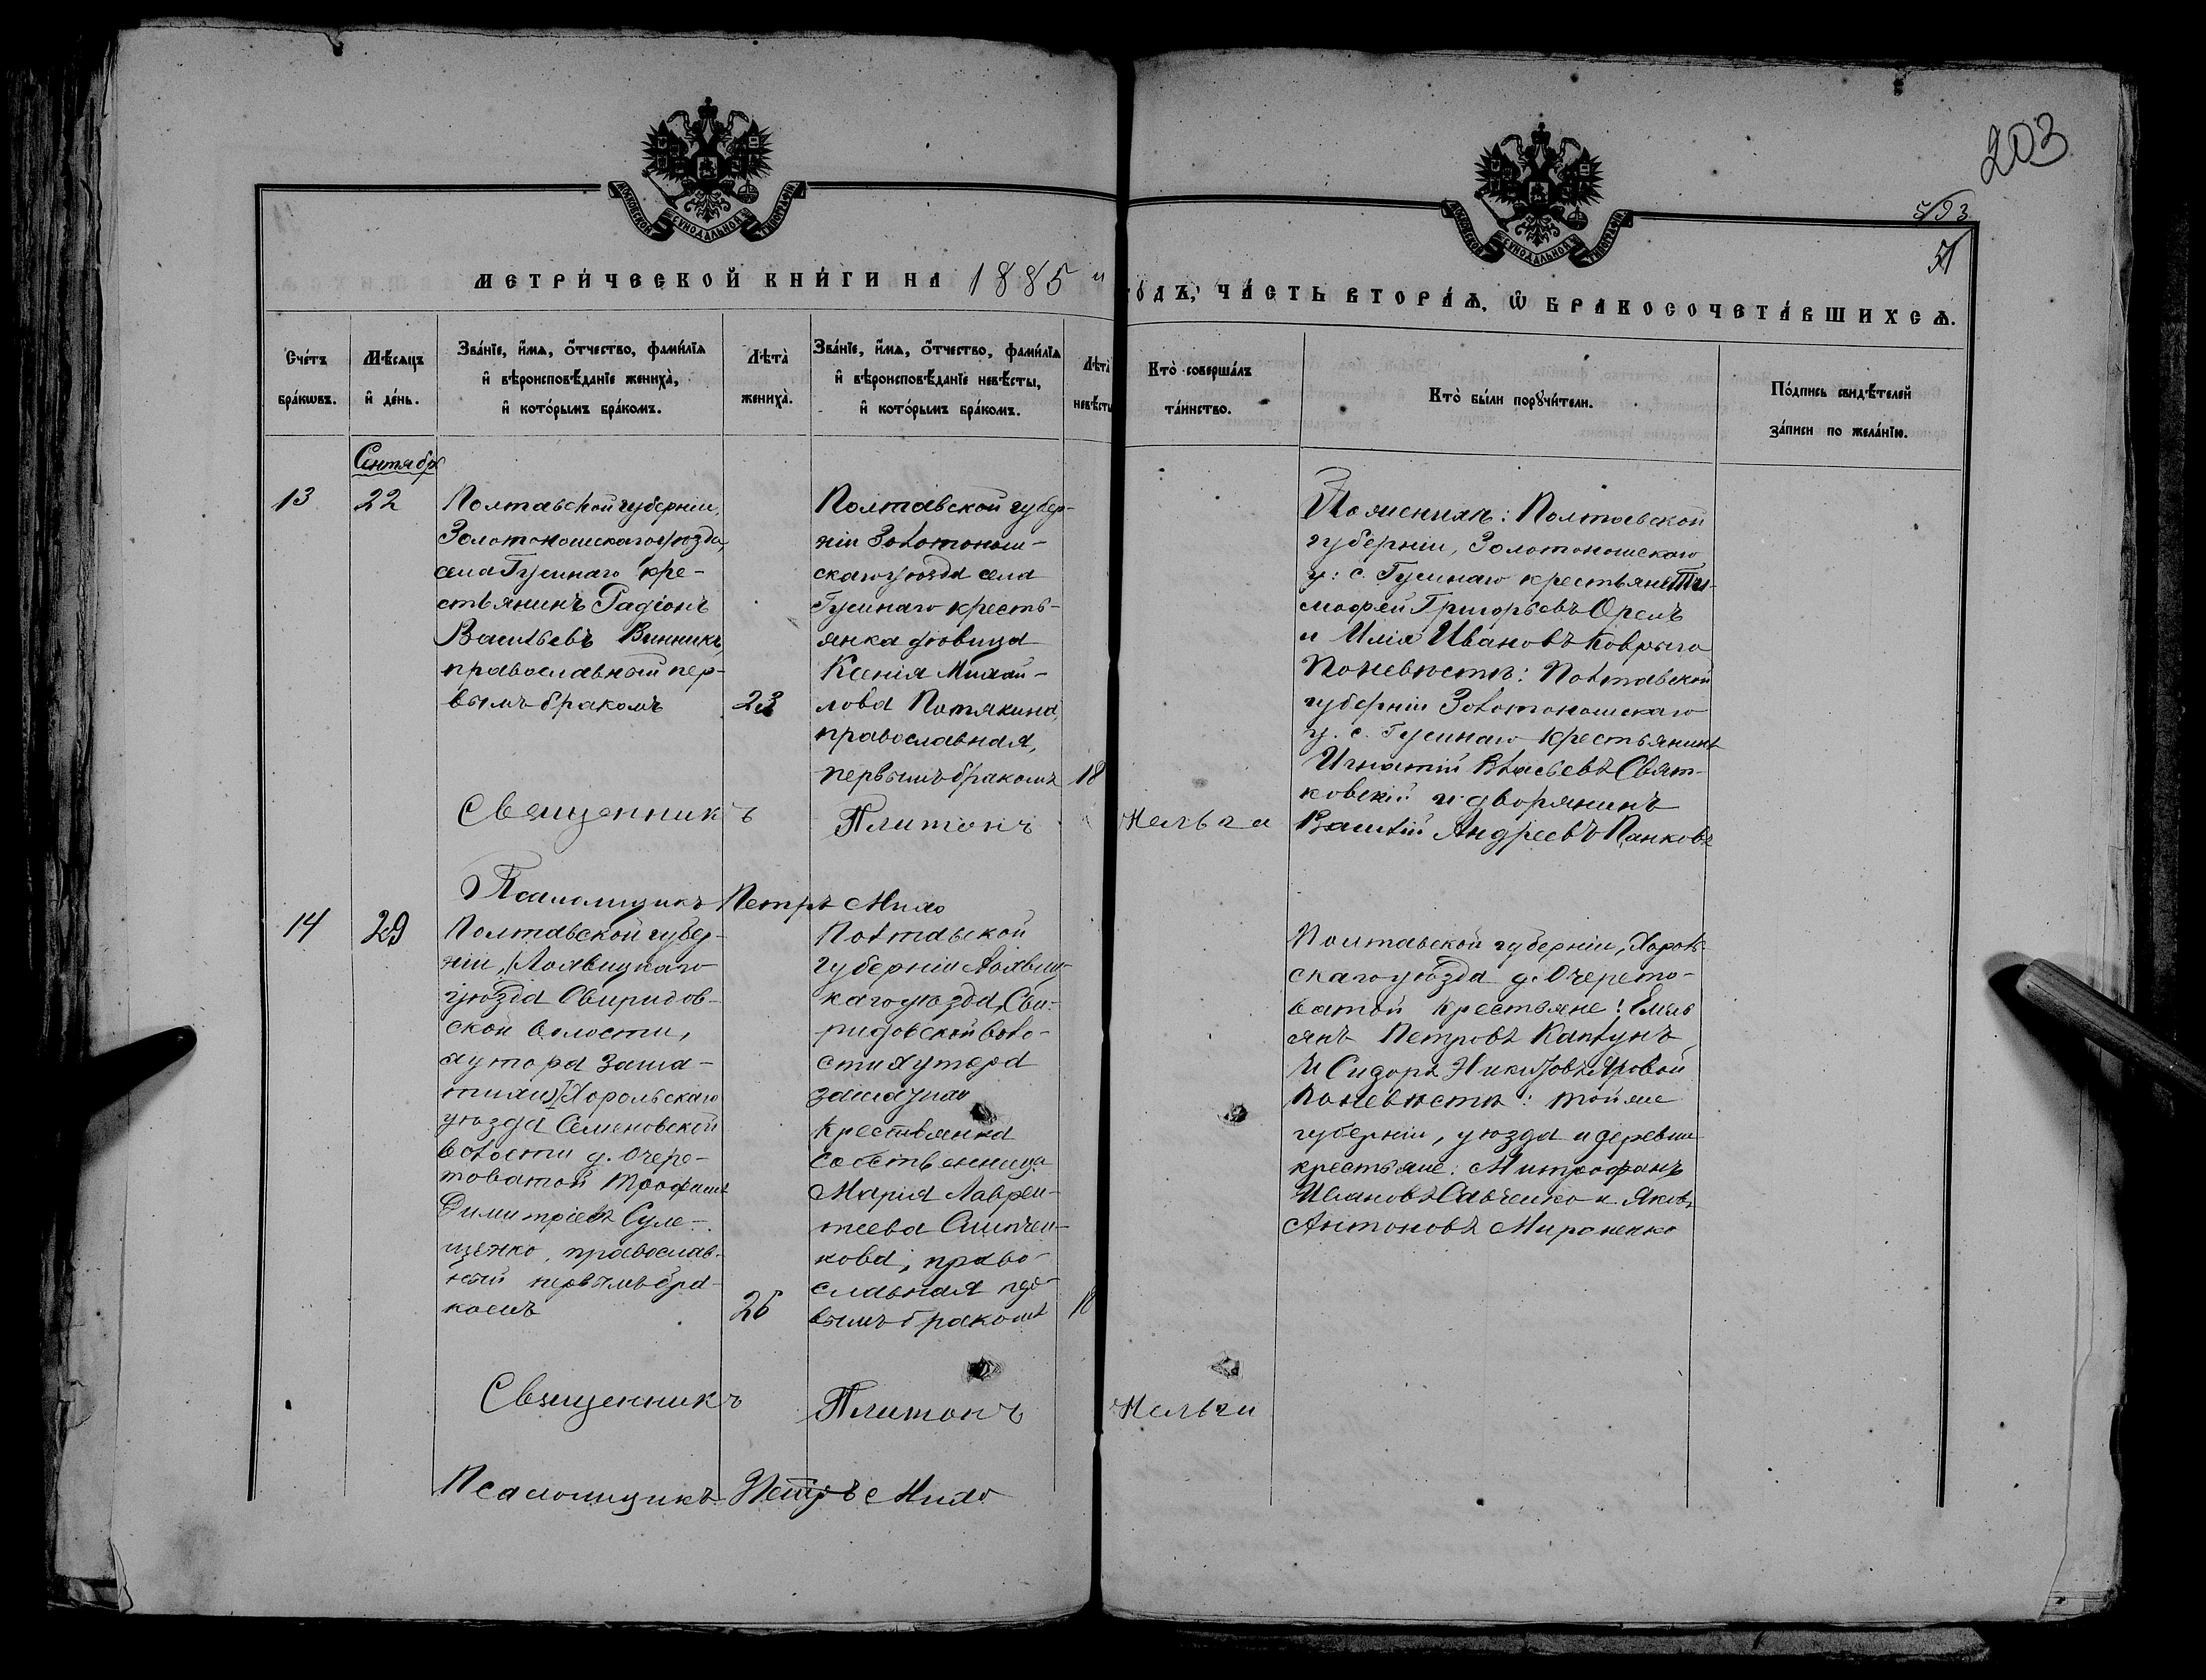 203
593
51
МОСКОВСКОЙ СУНОДАЛЬНОЙ ТИПОГРАФІИ
МОСКОВСКОЙ СУНОДАЛЬНОЙ ТИПОГРАФІИ
МЕТРИ́ЧЕСКОЙ КНИ́ГИ НА 1885 й
ГОДЪ, ЧА́СТЬ ВТОРА́Ѧ, Ѽ БРАКОСОЧЕТА́ВШИХСѦ.
Сче́тъ
бра́кѡвъ.
Мѣ́сяцъ
и҆ де́нь.
Зва́нїе, и҆́мѧ, о҆́тчество, фами́лїѧ
и҆ вѣроисповѣ́данїе жениха̀,
и҆ кото́рымъ бра́комъ.
Лѣта̀
жениха̀.
Зва́нїе, и҆́мѧ, о҆́тчество, фами́лїѧ
и҆ вѣроисповѣ́данїе невѣ́сты,
и҆ кото́рымъ бра́комъ.
Лѣта̀
невѣ́сты
Кто̀ соверша́лъ
та́инство.
Кто̀ бы́ли порꙋчи́тели.
По́дпись свидѣ́телей
за́писи по жела́нїю.
Сентябр
13
22
Полтавской губерніи,
Золотоношскаго уѣзда,
села Гусинаго кре-
стьянинъ Радіонъ
Васильевъ Винникъ,
православный пер-
вымъ бракомъ
23
Полтавской губер-
ніи Золотонош-
скаго уѣзда села
Гусинаго кресть-
янка дѣвица
Ксенія Михай-
лова Потякина,
православная,
первымъ бракомъ
18
По женихѣ: Полтавской
губерніи, Золотоношскаго
у: с. Гусинаго крестьяне Ти-
мофей Григорьевъ Орелъ
и Илія Ивановъ Коврыга
По невѣстѣ: Полтавской
губерніи Золотоношскаго
у. с. Гусинаго крестьянинъ
Игнатій Власьевъ Свят-
ковскій и дворянинъ
Василій Андреевъ Панковъ
Священникъ Платонъ Нельга
Псаломщикъ Петръ Михо
14
29
Полтавской губер-
ніи, Лохвицкаго
уѣзда Свиридов-
ской волости,
хутора
Хорольскаго
уѣзда Семеновской
волости д. Очере-
товатой Трофимъ
Димитріевъ Суле-
щенко, православ-
ный первымъ бра-
комъ
26
Полтавской
губерніи Лохвиц-
каго уѣзда, Сви-
ридовской воло-
сти хутора
крестьянка
собственница
Марія Лаврен-
тіева
кова, право-
славная пер-
вымъ бракомъ
18
Полтавской губерніи, Хороль-
скаго уѣзда д. Очерето-
ватой крестьяне: Емель
янъ Петровъ Каплунъ
и Сидоръ Никитовъ Яровой
По невѣстѣ: той же
губерніи, уѣзда и деревни
крестьяне: Митрофанъ
Ивановъ Савченко и Яковъ
Антоновъ Мироненко
Священникъ Платонъ Нельга
Псаломщикъ Петръ Михо